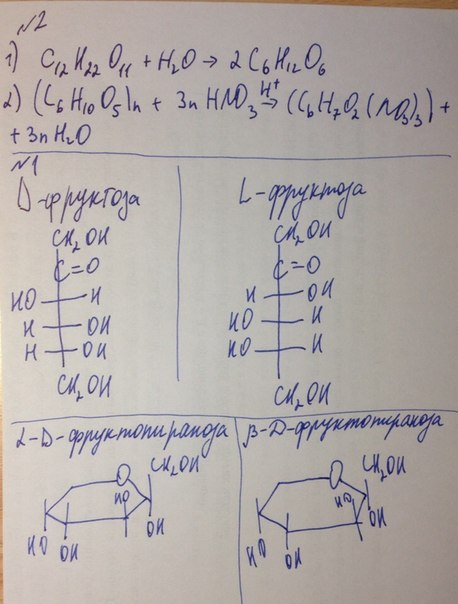 №2
1) C₁₂H₂₂O₁₁ + H₂O → 2C₆H₁₂O₆
2) (C₆H₁₀O₅)n + 3n HNO₃ H⁺→ (C₆H₇O₂(NO₃)₃) +
+ 3n H₂O
№1
D-фруктоза
CH₂OH
C=O
HO H
H OH
H OH
CH₂OH
L-фруктоза
CH₂OH
C=O
H OH
HO H
HO H
CH₂OH
α-D-фруктопираноза
O CH₂OH
HO
HO OH OH
β-D-фруктопираноза
O CH₂OH
HO
OH
HO OH